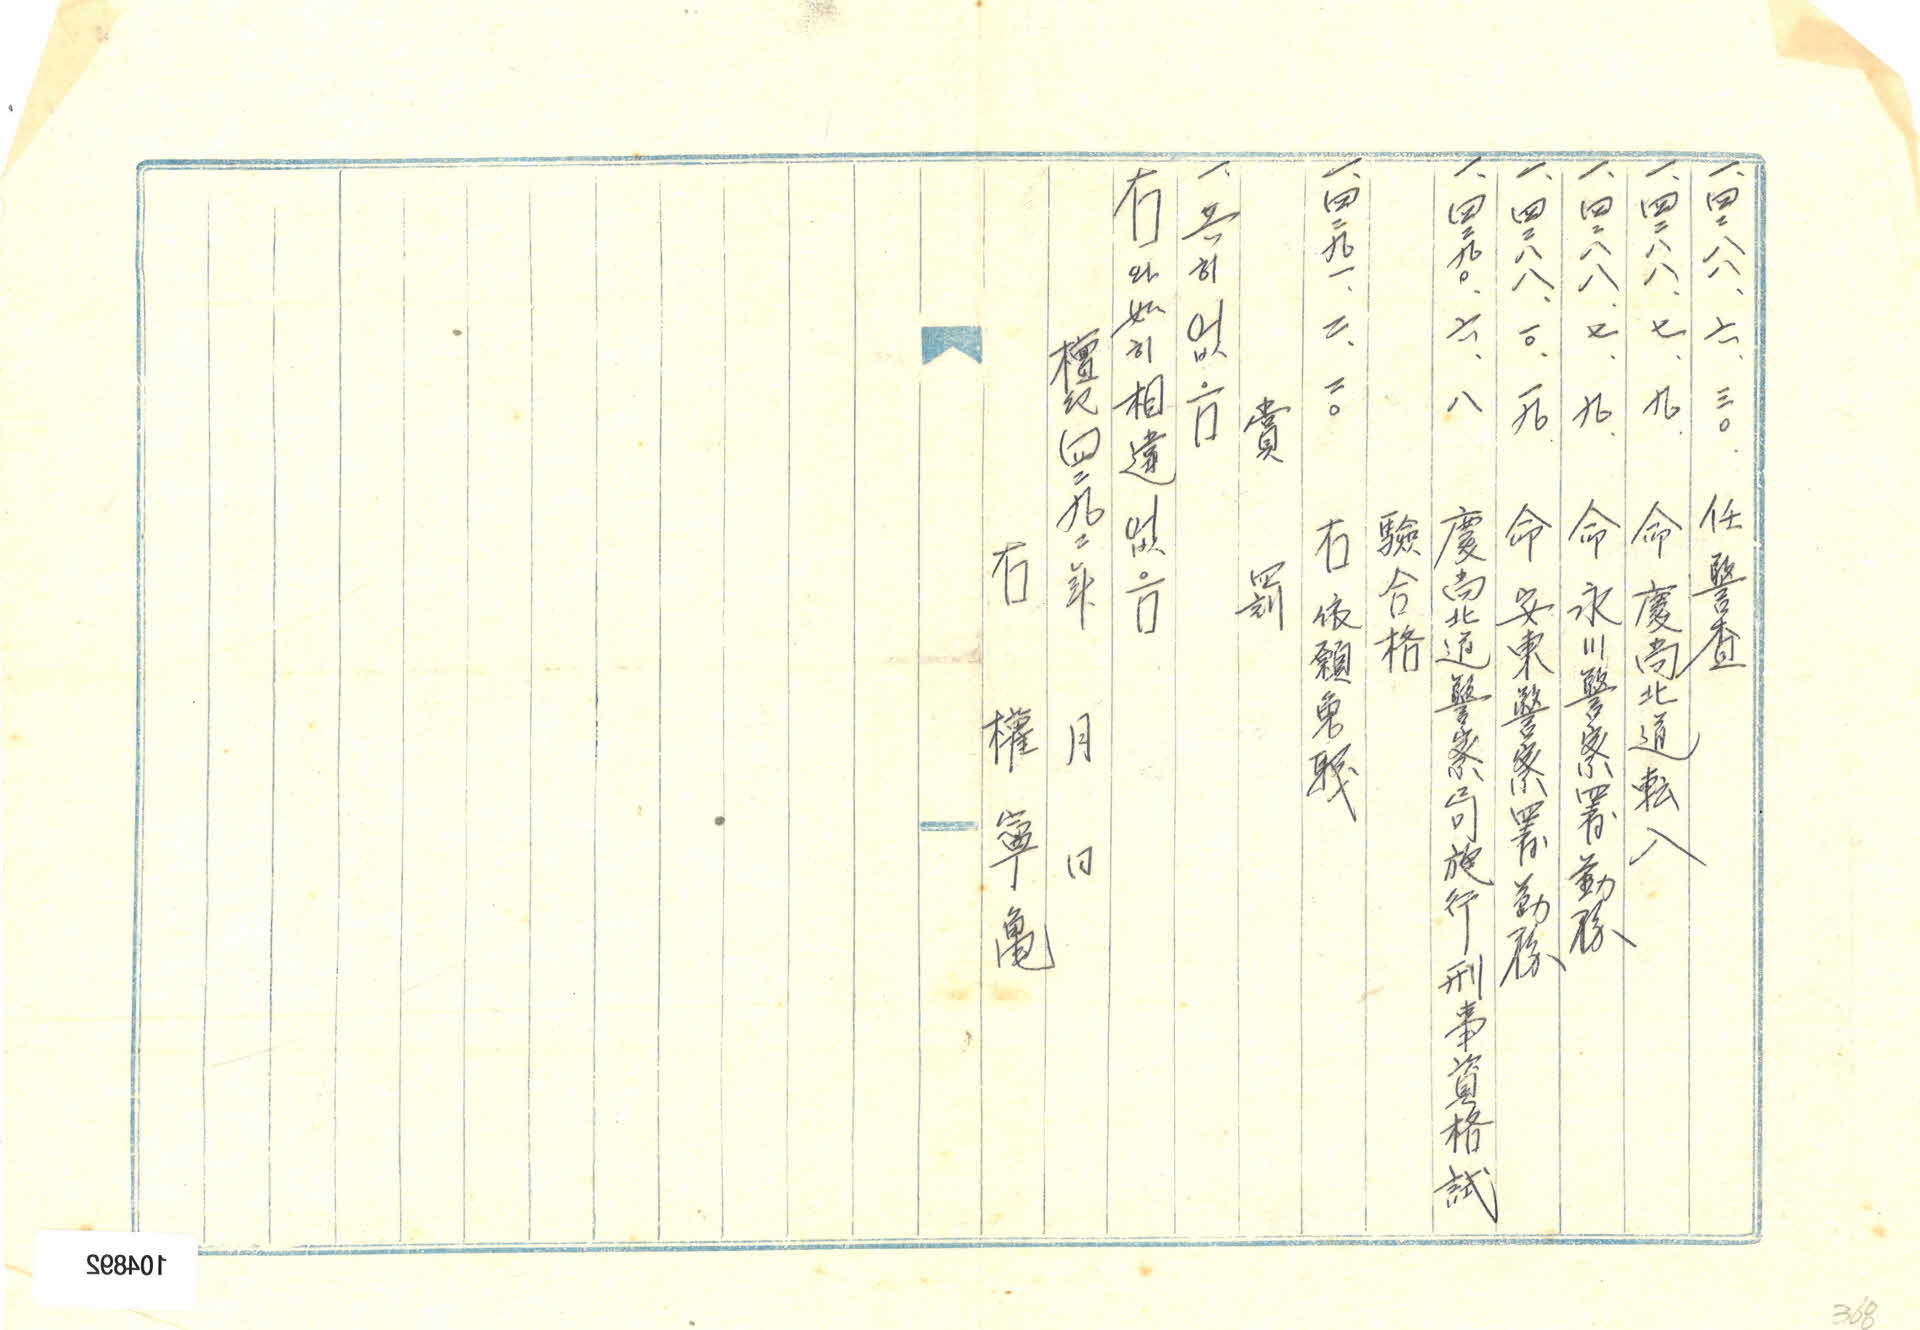 一、四二八八、六、三〇. 任警査
一、四二八八、七、九. 命慶尚北道転入
一、四二八八、七、九. 命永川警察署勤務
一、四二八八、一〇、一九. 命安東警察署勤務
一、四二九〇、六、八 慶尚北道警察局施行刑事資格試
驗合格
一、四二九一、二、二〇 右依願免職
賞 罰
一、共히없음
右와如히相違없음
檀紀四二九二年 月 日
右 權寧亀
104892
368